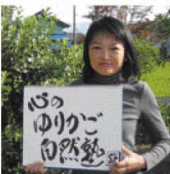 心の
ゆりかご
自然塾